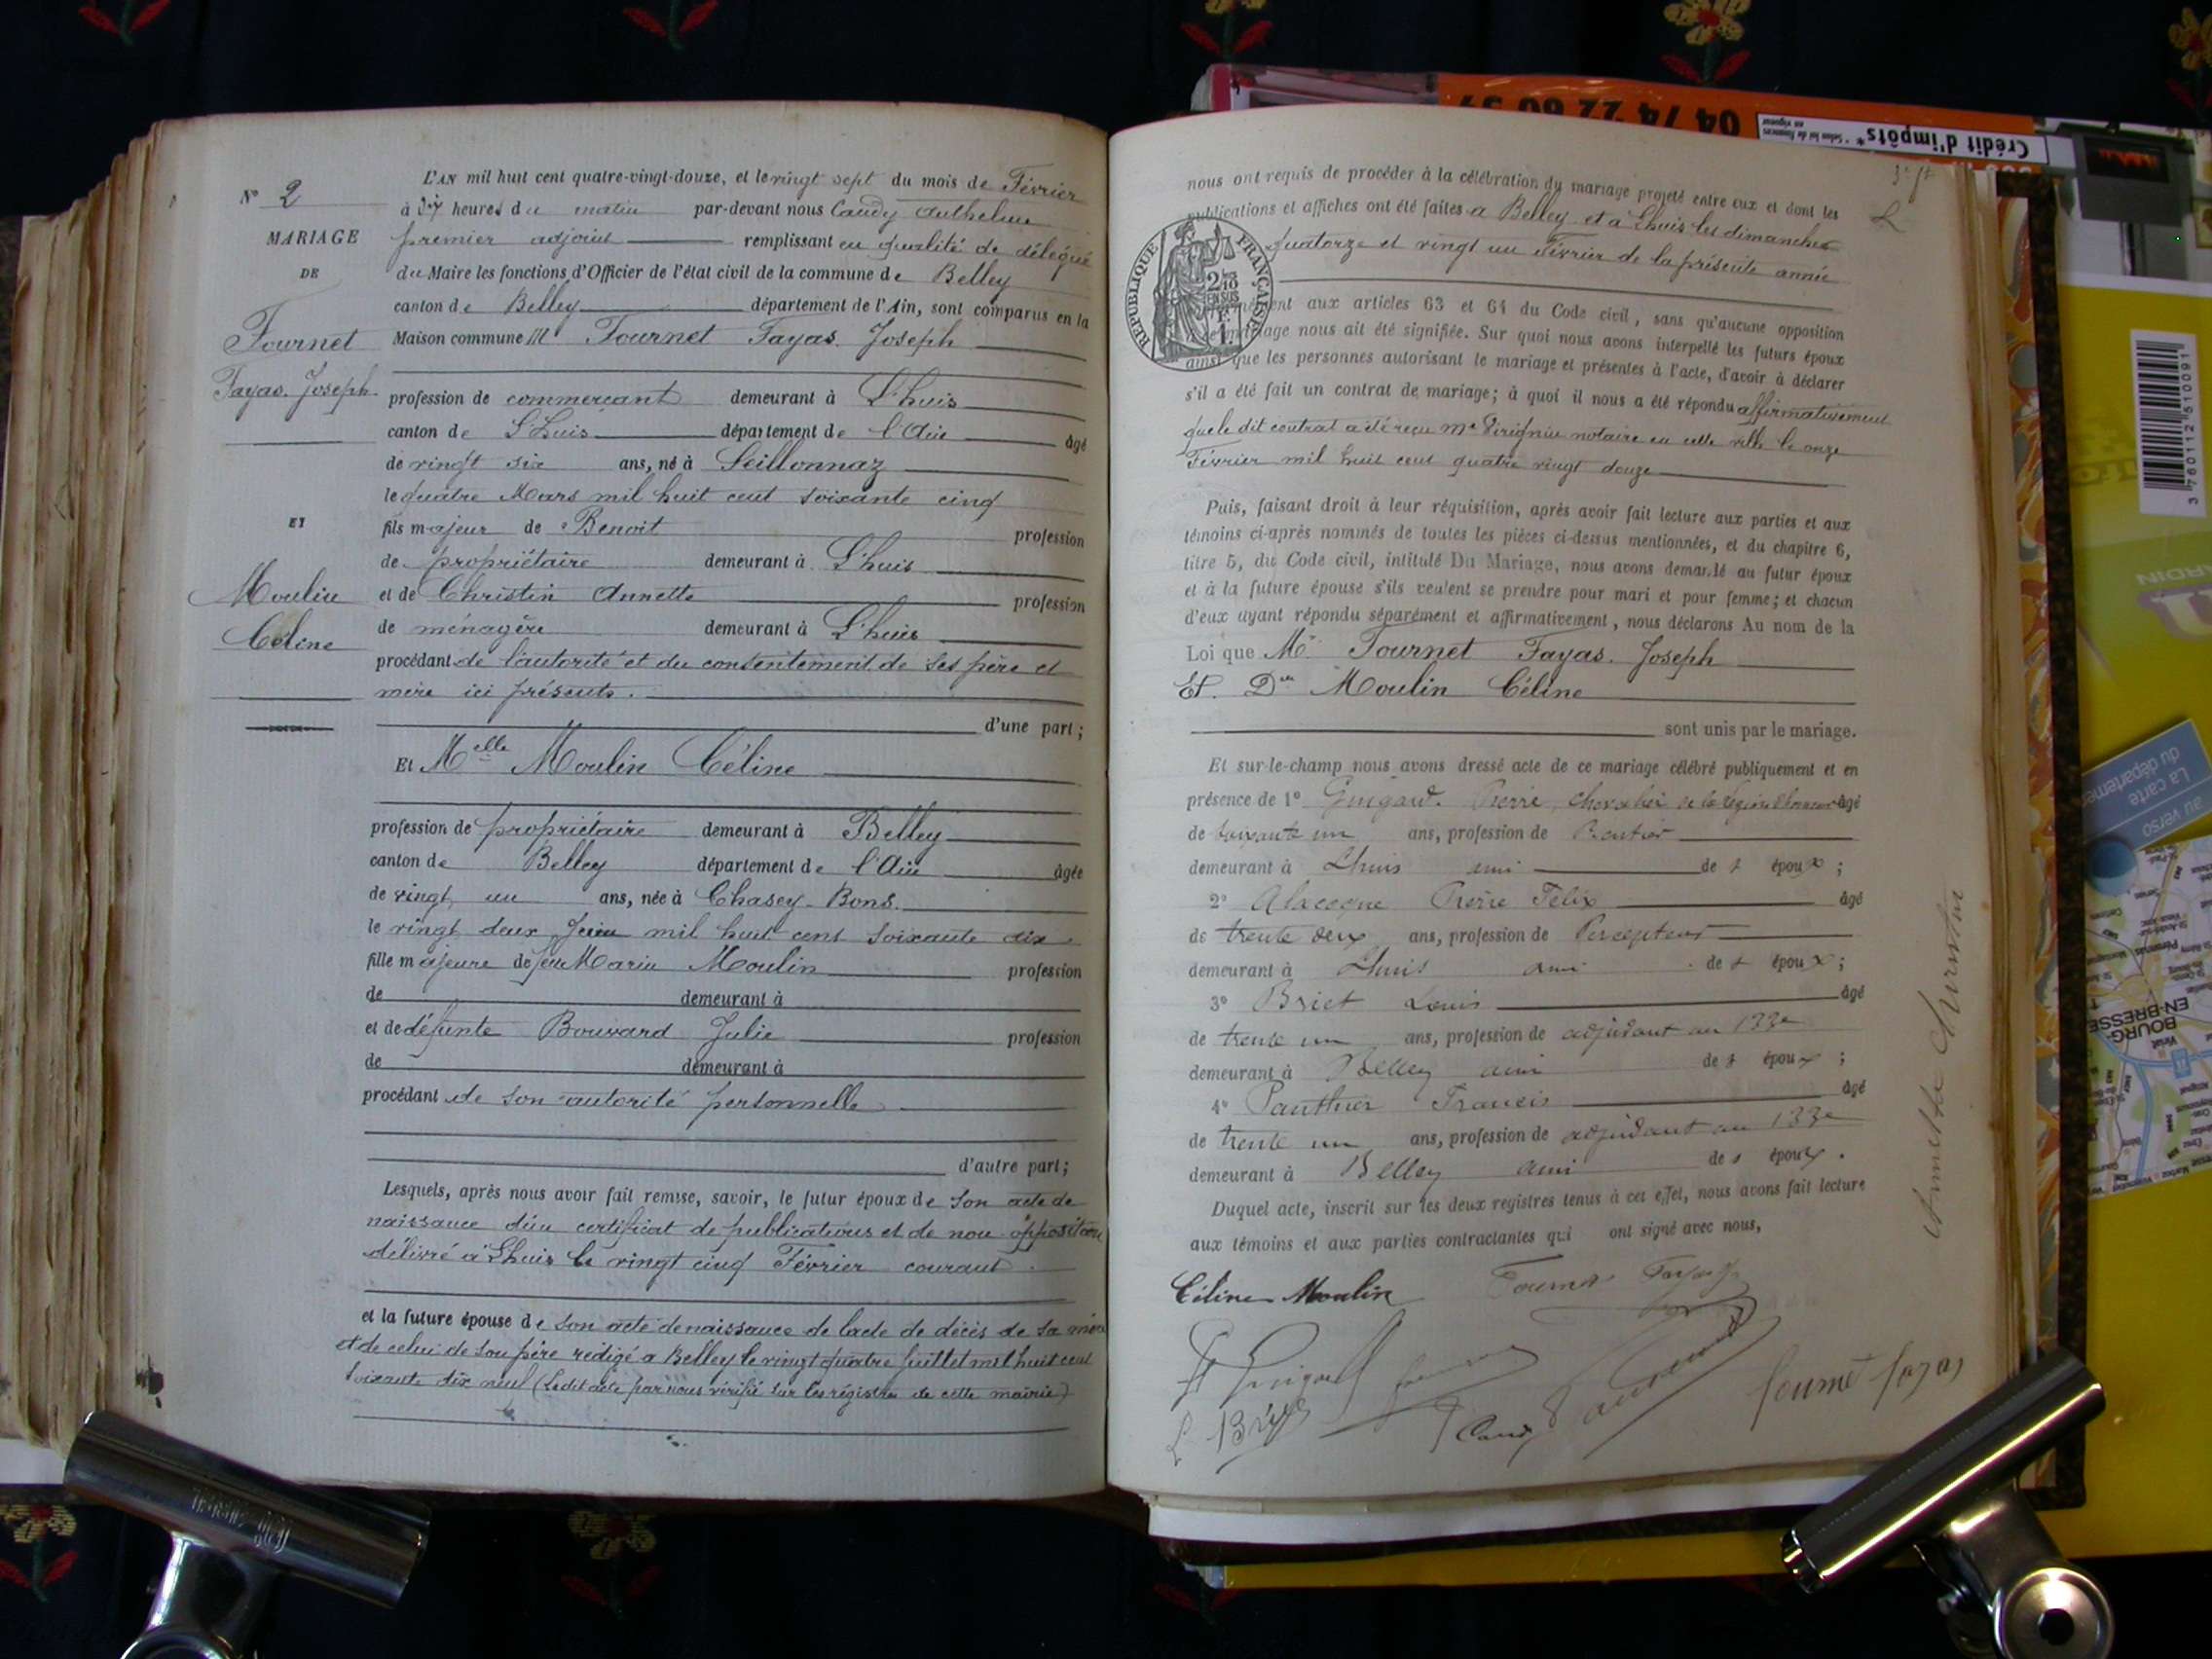 N° 2
MARIAGE
DE
Fournet
Fayas. Joseph
ET
Moulin
Céline
L'AN mil huit cent quatre-vingt-douze, et le vingt sept du mois de Février
à dix heures du matin par-devant nous Caudy Anthelme
premier adjoint remplissant en qualité de délégué
du Maire les fonctions d'Officier de l'état civil de la commune de Belley
canton de Belley département de l'Ain, sont comparus en la
Maison commune Mr Fournet Fayas. Joseph
profession de commerçant demeurant à L'huis
canton de L'huis département de l'Ain âgé
de vingt six ans, né à Seillonnaz
le quatre Mars mil huit cent soixante cinq
fils majeur de Benoit profession
de propriétaire demeurant à L'huis
et de Christin Annette profession
de ménagère demeurant à L'huis
procédant de l'autorité et du consentement de ses père et
mère ici présents.
d'une part;
Et Melle Moulin Céline
profession de propriétaire demeurant à Belley
canton de Belley département de l'Ain âgée
de vingt un ans, née à Chasey-Bons.
le vingt deux Juin mil huit cent soixante dix
fille majeure de feu Marin Moulin profession
de demeurant à
et de défunte Bouvard Julie profession
de demeurant à
procédant de son autorité personnelle
d'autre part;
Lesquels, après nous avoir fait remise, savoir, le futur époux de son acte de
naissance d'un certificat de publications et de non opposition
délivré à Lhuis le vingt cinq Février courant.
et la future épouse de son acte de naissance de l'acte de décès de sa mère
et de celui de son père redigé a Belley le vingt quatre juillet mil huit cent
soixante dix neuf (Ledit acte par nous vérifié sur les régistres de cette mairie)
nous ont requis de procéder à la célébration du mariage projeté entre eux et dont les
publications et affiches ont été faites a Belley et à Lhuis les dimanches
quatorze et vingt un Février de la présente année
RÉPUBLIQUE FRANÇAISE
aux articles 63 et 64 du Code civil, sans qu'aucune opposition
nous ait été signifiée. Sur quoi nous avons interpellé les futurs époux
ainsi que les personnes autorisant le mariage et présentes à l'acte, d'avoir à déclarer
s'il a été fait un contrat de mariage; à quoi il nous a été répondu affirmativement
que le dit contrat a été reçu Me notaire en cette ville le onze
Février mil huit cent quatre vingt douze
Puis, faisant droit à leur réquisition, après avoir fait lecture aux parties et aux
témoins ci-après nommés de toutes les pièces ci-dessus mentionnées, et du chapitre 6,
titre 5, du Code civil, intitulé Du Mariage, nous avons demandé au futur époux
et à la future épouse s'ils veulent se prendre pour mari et pour femme; et chacun
d'eux ayant répondu séparément et affirmativement, nous déclarons Au nom de la
Loi que Mr Fournet Fayas. Joseph
Et. Dlle Moulin Céline
sont unis par le mariage.
Et sur-le-champ nous avons dressé acte de ce mariage célébré publiquement et en
présence de 1° Pierre, chevalier de la Légion d'honneur âgé
de soixante un ans, profession de Rentier
demeurant à Lhuis ami des époux;
2° Alacoque Pierre Felix âgé
de trente deux ans, profession de Percepteur
demeurant à Lhuis ami des époux;
3° Briet Louis âgé
de trente un ans, profession de adjudant au 133e
demeurant à Belley ami des époux;
4° Panthier Francis âgé
de trente un ans, profession de adjudant au 133e
demeurant à Belley ami des époux.
Duquel acte, inscrit sur les deux registres tenus à cet effet, nous avons fait lecture
aux témoins et aux parties contractantes qui ont signé avec nous,
Céline Moulin
Caudy
fournet fayas
Annette Christin
04 74 22 60
Crédit d'impôts*
* Selon loi de finances en vigueur
3 760112 510091
La carte
du départeme
au verso
BOURG-
EN-BRESSE